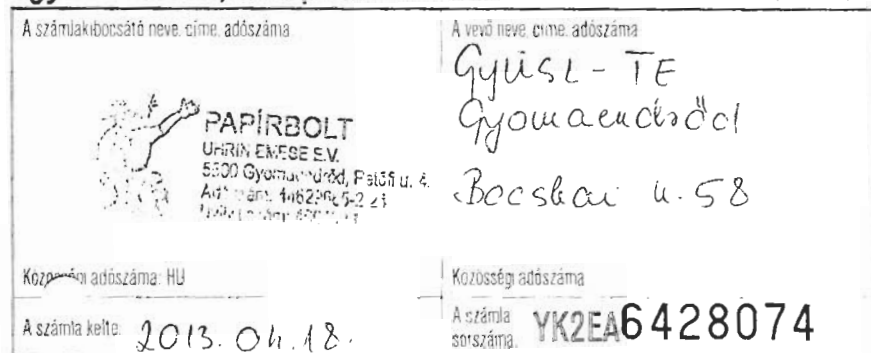 A számlakibocsátó neve, címe, adószáma
PAPÍRBOLT
UHRIN EMESE E.V.
5500 Gyomaendrőd, Petőfi u. 4.
Közösségi adószáma: HU
A számla kelte: 2013. 04. 18.
A vevő neve, címe, adószáma
GYÜSZ-TE
Gyomaendrőd
Bocskai u. 58
Közösségi adószáma
A számla
sorszáma: YK2EA6428074